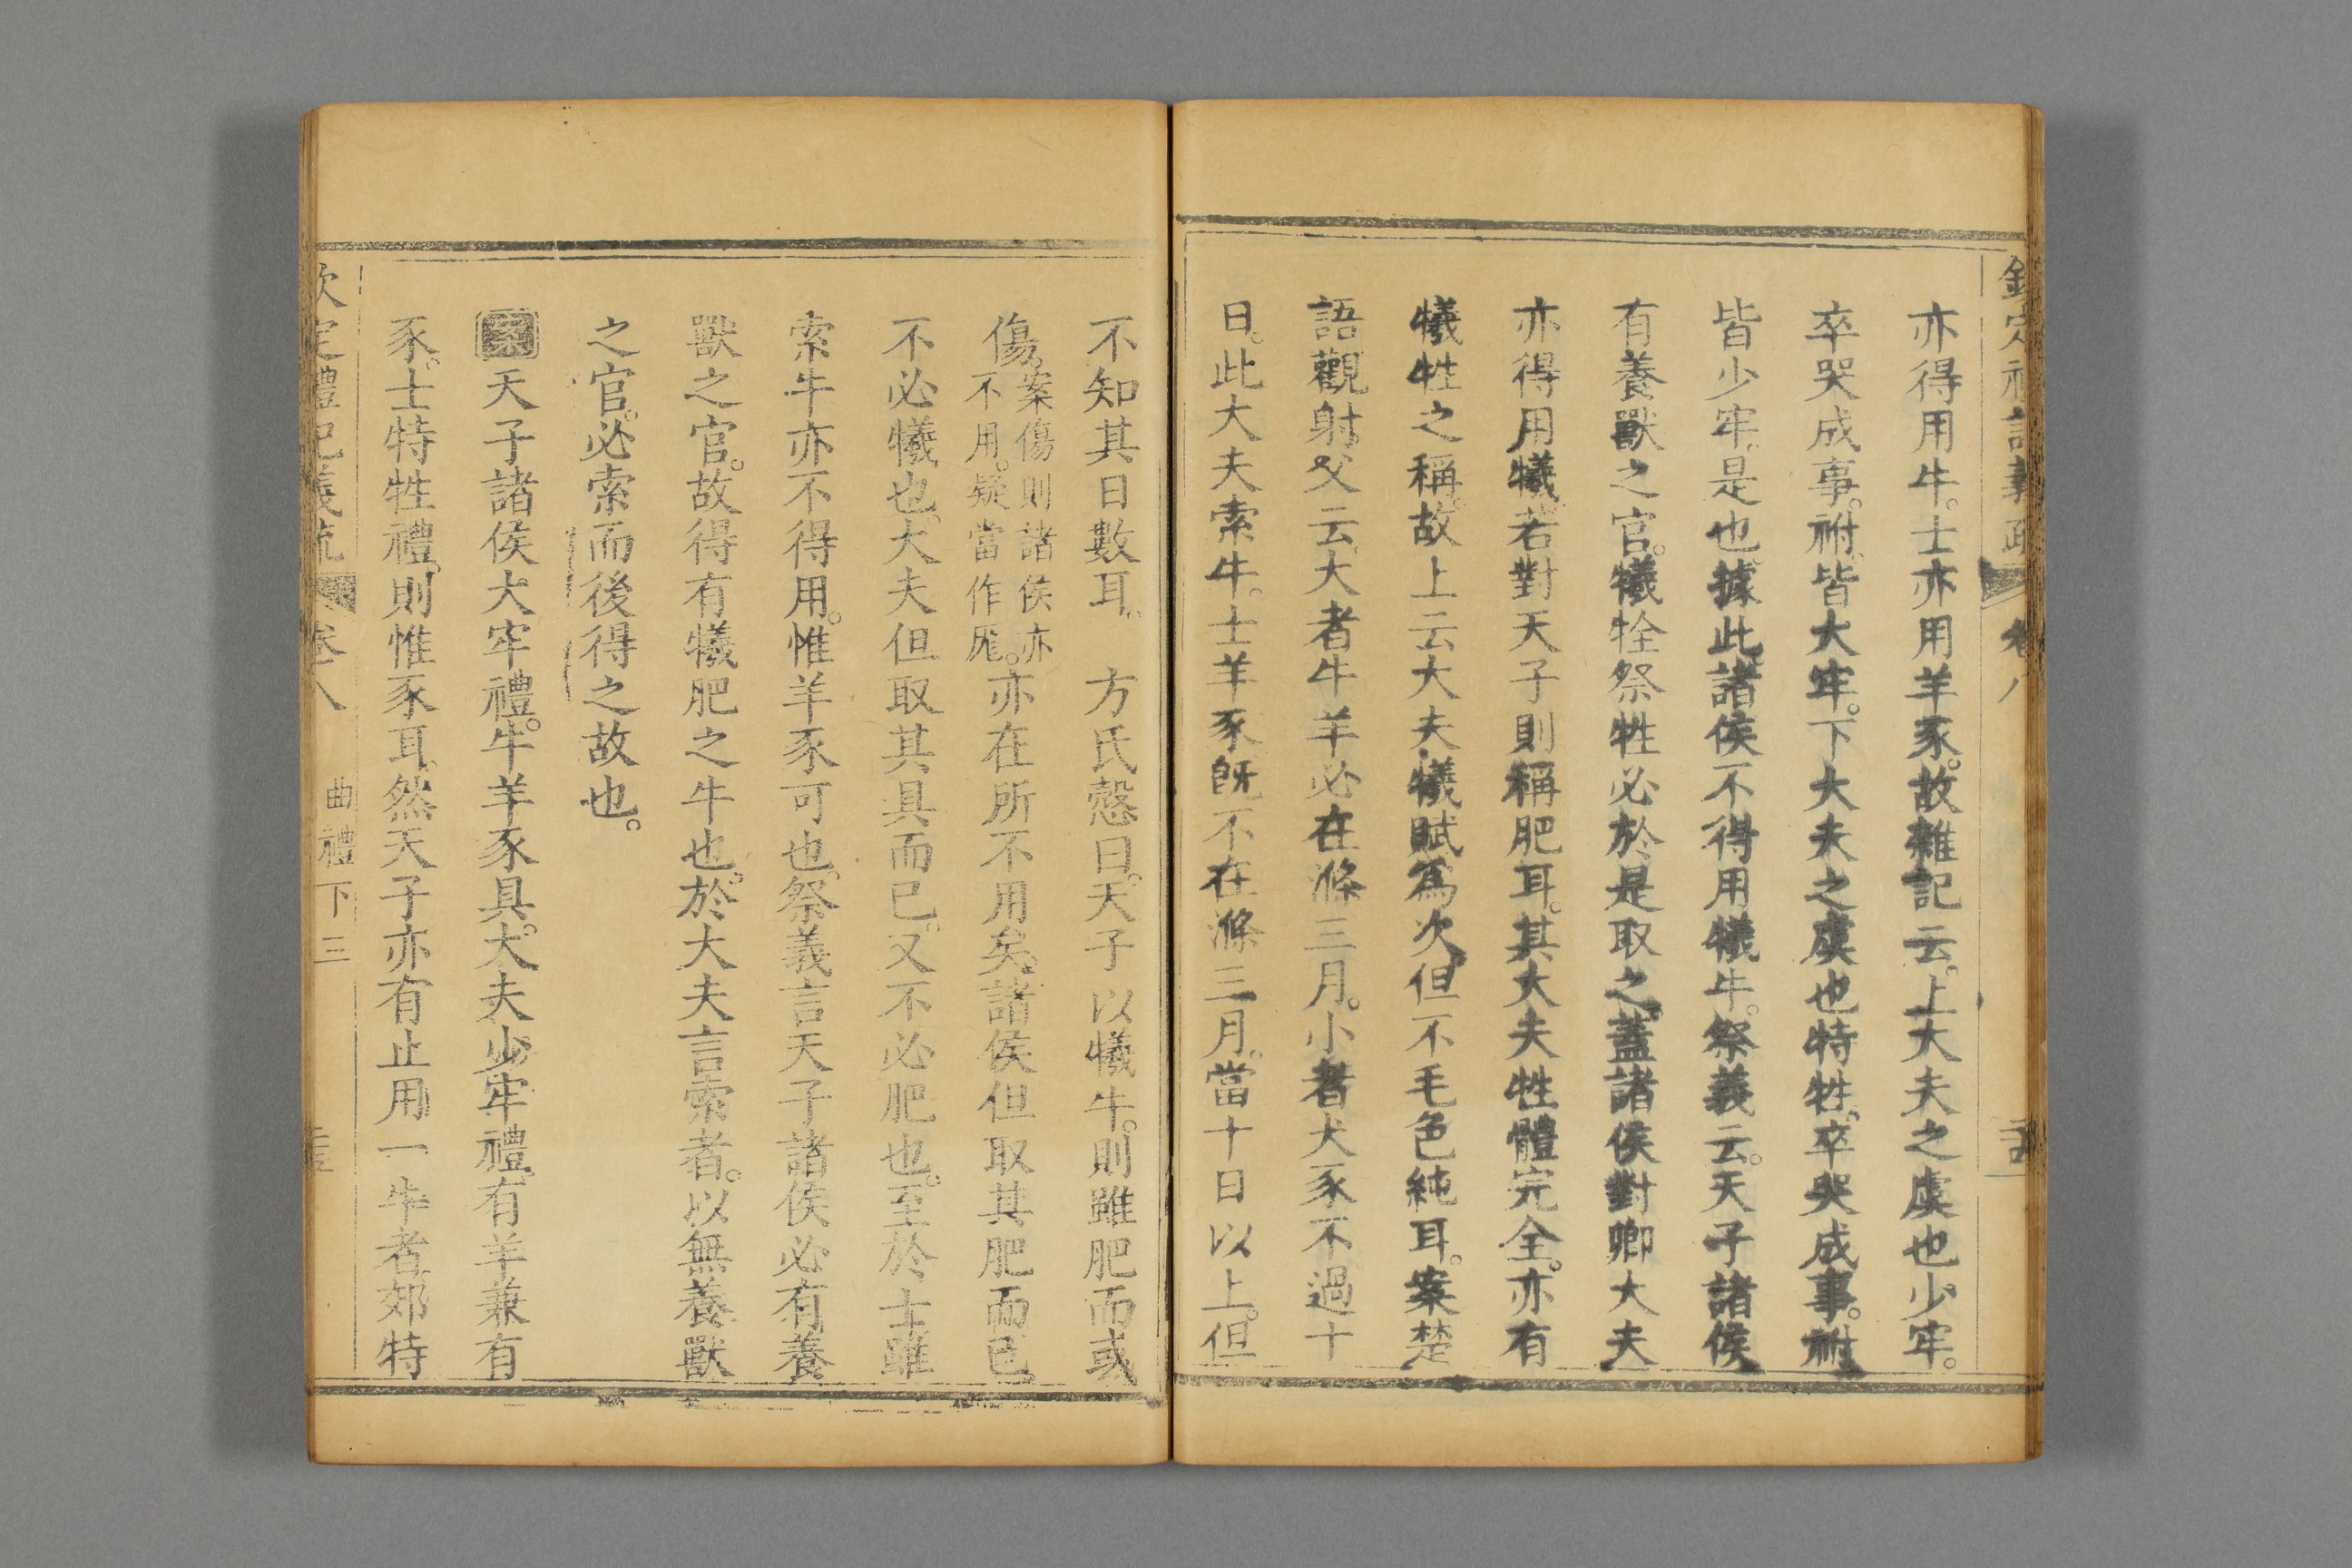 欽定禮記義疏 卷八
亦得用牛。士亦用羊豕。故雜記云。上大夫之虞也。少牢。
卒哭成事。祔。皆大牢。下大夫之虞也特牲。卒哭成事。祔
皆少牢。是也。據此。諸侯不得用犧牛。祭義云。天子諸侯
有養獸之官。犧牷祭牲必於是取之。蓋諸侯對卿大夫
亦得用犧。若對天子則稱肥耳。其大夫牲體完全。亦有
犧牲之稱。故上云大夫犧賦為次。但不毛色純耳。案楚
語觀射父云。大者牛羊必在滌三月。小者犬豕不過十
日。此大夫索牛。士羊豕既不在滌三月。當十日以上。但
不知其日數耳。 方氏愨曰。天子以犧牛。則雖肥而或
傷。案傷則諸侯亦不用。疑當作尨。亦在所不用矣。諸侯但取其肥而已
不必犧也。大夫但取其具而已。又不必肥也。至於士雖
索牛亦不得用。惟羊豕可也。祭義言天子諸侯必有養
獸之官。故得有犧肥之牛也。於大夫言索者。以無養獸
之官。必索而後得之故也。
案天子諸侯大牢禮。牛羊豕具。大夫少牢禮。有羊兼有
豕。士特牲禮。則惟豕耳。然天子亦有止用一牛者郊特
欽定禮記義疏 卷八 曲禮下三